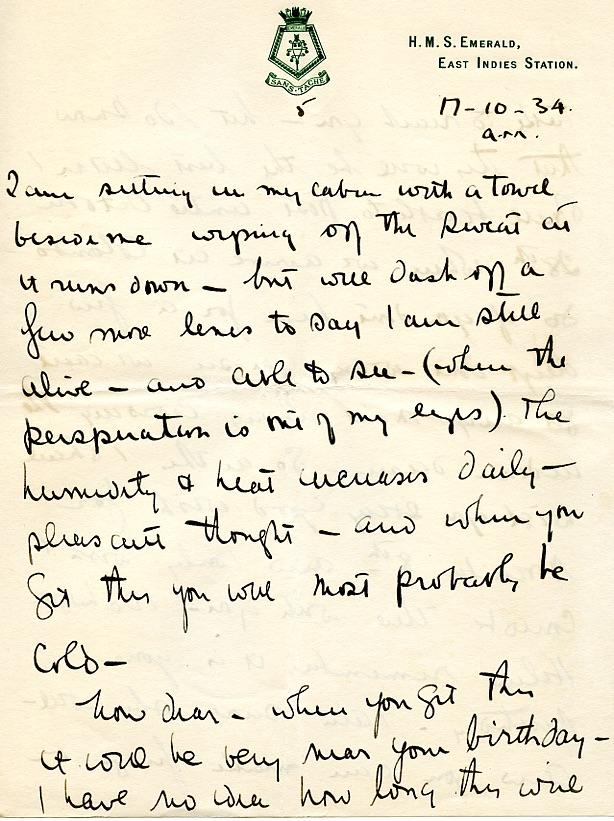 EMERALD
SANS-TACHE
H.M.S. EMERALD,
EAST INDIES STATION.
5
17-10-34.
a.m.
I am sitting in my cabin with a towel
beside me wiping off the sweat as
it runs down – but will dash off a
few more lines to say I am still
alive – and able to see – (when the
perspiration is out of my eyes). The
humidity & heat increases daily –
pleasant thought – and when you
get this you will most probably be
cold –
Now dear – when you get this
it will be very near your birthday –
I have no idea how long this will